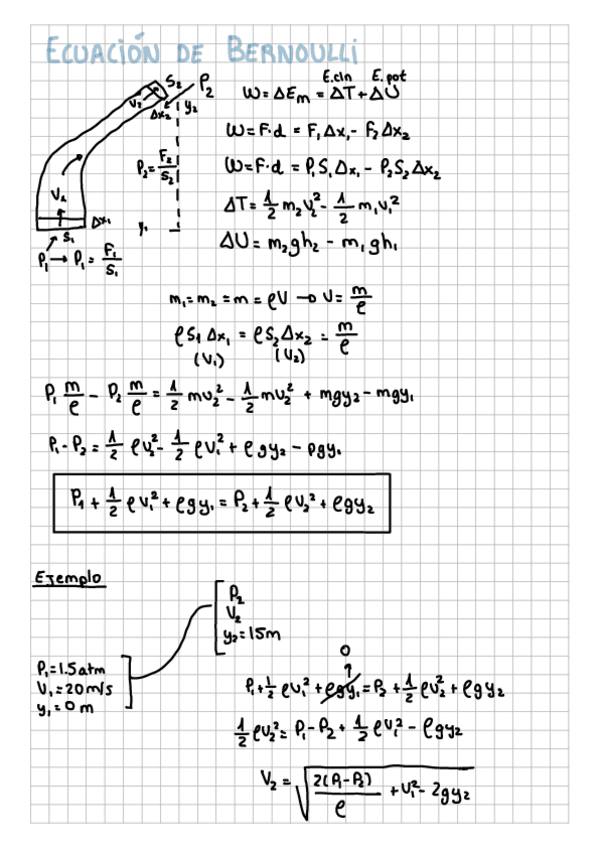 ECUACIÓN DE BERNOULLI
S₂ P₂
V₂ Δx₂ y₂
P₂ = F₂/S₂
V₂
Δx₁ y₁
S₁
P₁ → P₁ = F₁/S₁
E.cin E.pot
W = ΔEm = ΔT + ΔU
W = F·d = F₁Δx₁ - F₂Δx₂
W = F·d = P₁S₁Δx₁ - P₂S₂Δx₂
ΔT = 1/2 m₂v₂² - 1/2 m₁v₁²
ΔU = m₂gh₂ - m₁gh₁
m₁ = m₂ = m = ρV → V = m/ρ
ρS₁Δx₁ = ρS₂Δx₂ = m/ρ
(V₁) (V₂)
P₁ m/ρ - P₂ m/ρ = 1/2 mv₂² - 1/2 mv₂² + mgy₂ - mgy₁
P₁ - P₂ = 1/2 ρv₂² - 1/2 ρv₁² + ρgy₂ - ρgy₁
P₁ + 1/2 ρv₁² + ρgy₁ = P₂ + 1/2 ρv₂² + ρgy₂
Ejemplo
P₂
V₂
y₂ = 15m
P₁ = 1.5atm
V₁ = 20m/s
y₁ = 0m
0
P₁ + 1/2 ρv₁² + ρgy₁ = P₂ + 1/2 ρv₂² + ρgy₂
1/2 ρv₂² = P₁ - P₂ + 1/2 ρv₁² - ρgy₂
V₂ = √(2(P₁-P₂)/ρ + v₁² - 2gy₂)